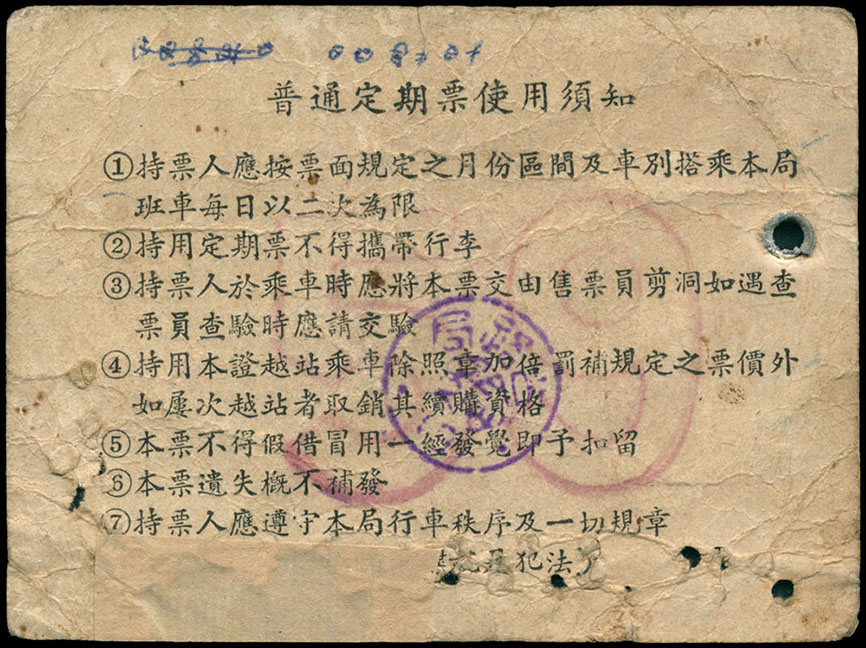 008701
普通定期票使用須知
①持票人應按票面規定之月份區間及車別搭乘本局
班車每日以二次為限
②持用定期票不得攜帶行李
③持票人於乘車時應將本票交由售票員剪洞如遇查
票員查驗時應請交驗
④持用本證越站乘車除照章加倍罰補規定之票價外
如屢次越站者取銷其續購資格
⑤本票不得假借冒用一經發覺即予扣留
⑥本票遺失概不補發
⑦持票人應遵守本局行車秩序及一切規章
犯法